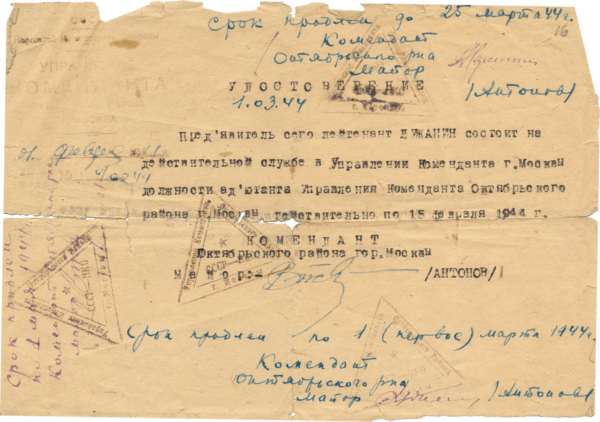 Срок продлен до 25 марта 44 г.
16
Комендант
Октябрьского р-на
Майор /Антонов/
УДОСТОВЕРЕНИЕ
1.03.44
Пред'явитель сего лейтенант ЛУЖАНИН состоит на
действительной службе в Управлении Коменданта г. Москвы
должности ад'ютанта Управления Коменданта Октябрьского
района г. Москвы действительно по 15 февраля 1944 г.
КОМЕНДАНТ
Октябрьского района гор. Москвы
Майор: /АНТОНОВ/
СССР-НКО
СССР-НКО
Срок продлен
Комендант
Майор
Срок продлен по 1 (первое) марта 1944 г.
Комендант
Октябрьского р-на
Майор /Антонов/